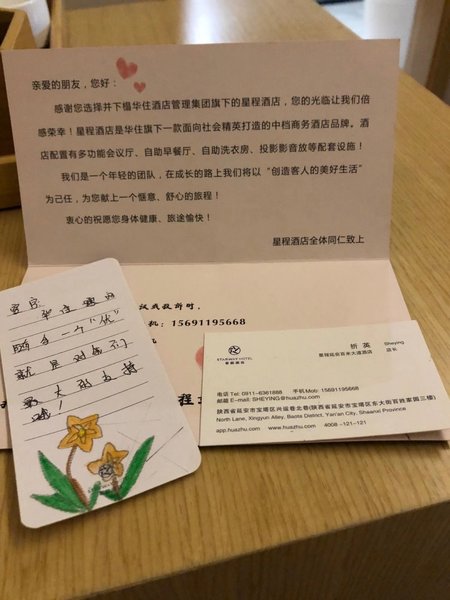 亲爱的朋友，您好：
感谢您选择并下榻华住酒店管理集团旗下的星程酒店，您的光临让我们倍
感荣幸！星程酒店是华住旗下一款面向社会精英打造的中档商务酒店品牌。酒
店配置有多功能会议厅、自助早餐厅、自助洗衣房、投影影音放等配套设施！
我们是一个年轻的团队，在成长的路上我们将以“创造客人的美好生活”
为己任，为您献上一个惬意、舒心的旅程！
衷心的祝愿您身体健康、旅途愉快！
星程酒店全体同仁致上
议或投诉时，
机：15691195668
程
客官
华住国内
随手一个“优”
就是对我们
最大的支持
哦！
STARWAY HOTEL
星程酒店
析 英 Sheying
星程延安百米大道酒店 店长
电话 Tel: 0911-6361888 手机Mob: 15691195668
邮箱 E-mail: SHEYING@huazhu.com
陕西省延安市宝塔区兴运巷北巷(陕西省延安市宝塔区东大街百姓家园三楼)
North Lane, Xingyun Alley, Baota District, Yan'an City, Shaanxi Province
app.huazhu.com www.huazhu.com 4008-121-121